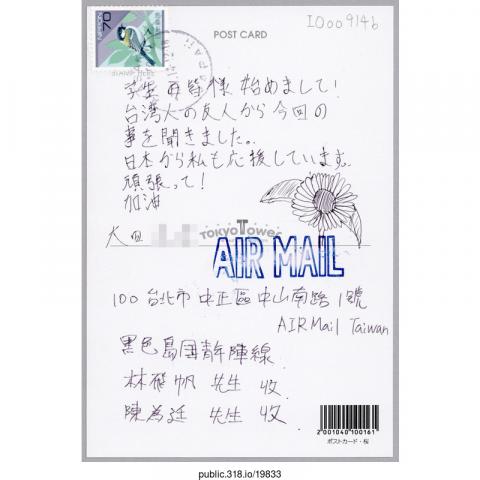 I0009146
70
POST CARD
学生の皆様 始めまして!
台湾人の友人から今回の
事を聞きました。
日本から私も応援しています。
頑張って!
加油
TOKYO Tower
AIR MAIL
100 台北市 中正區 中山南路 1號
AIR Mail Taiwan
黑色島國青年陣線
林飛帆 先生 收
陳為廷 先生 收
2001040100161
ポストカード・桜
public.318.io/19833